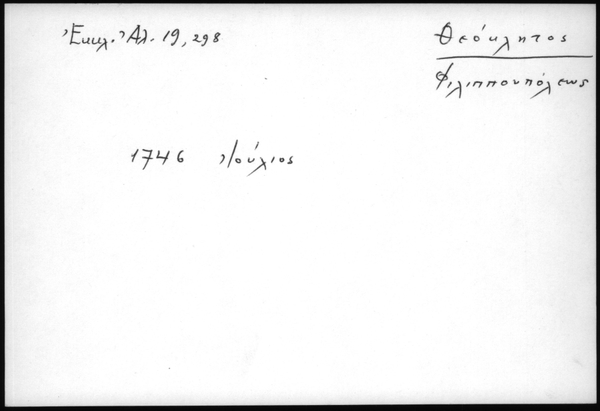 Ἐκκλ. Ἀλ. 19, 298
Θεόκλητος
Φιλιππουπόλεως
1746 Ἰούλιος